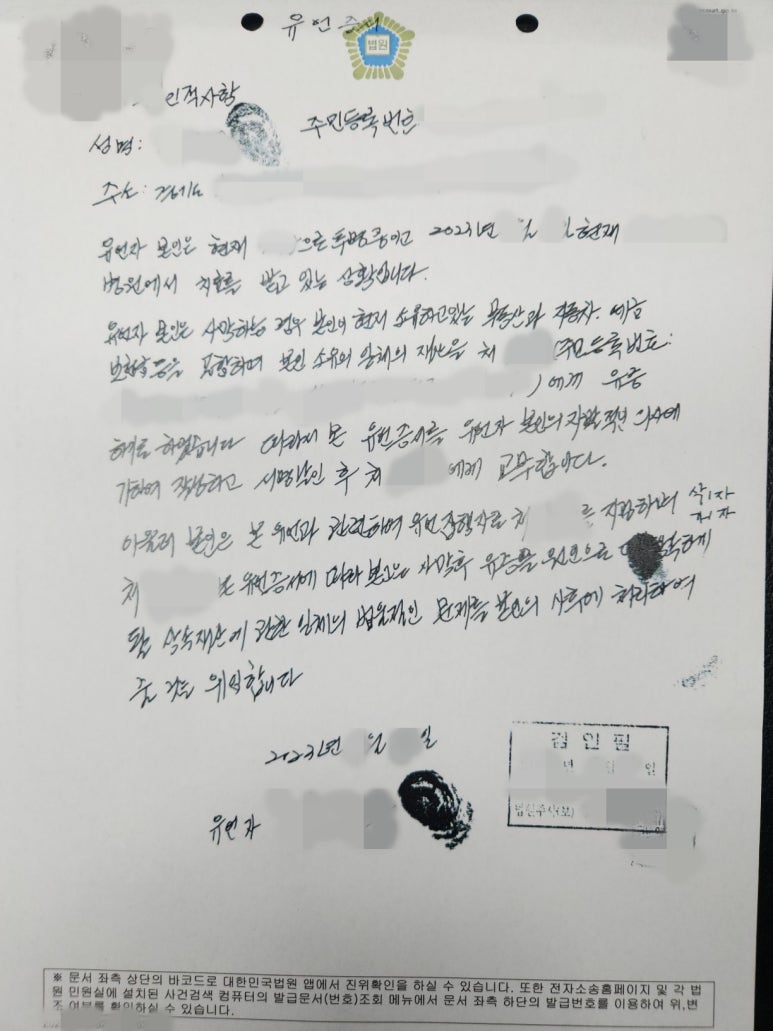 유언증서
법원
인적사항
성명: 주민등록번호
주소: 경기도
유언자 본인은 현재 으로 투병중이고 2023년 월 일 현재
병원에서 치료를 받고 있는 상황입니다.
유언자 본인은 사망하는 경우 본인이 현재 소유하고있는 부동산과 자동차. 예금
보험금등을 포함하여 본인 소유의 일체의 재산을 처 (주민등록번호:
)에게 유증
하기로 하였습니다 따라서 본 유언증서를 유언자 본인의 자발적인 의사에
기하여 작성하고 서명날인 후 처 에게 교부합니다.
아울러 본인은 본 유언과 관련하여 유언집행자로 처 를 지정하며 삭1자
처 본 유언증서에 따라 본인의 사망후 유증을 원인으로 하게
될 상속재산에 관한 일체의 법률적인 문제를 본인의 사후에 처리하여
줄 것을 위임합니다
2023년 월 일
유언자
검인필
년 월 일
법원주사(보)
※ 문서 좌측 상단의 바코드로 대한민국법원 앱에서 진위확인을 하실 수 있습니다. 또한 전자소송홈페이지 및 각 법
원 민원실에 설치된 사건검색 컴퓨터의 발급문서(번호)조회 메뉴에서 문서 좌측 하단의 발급번호를 이용하여 위,변
조 여부를 확인하실 수 있습니다.